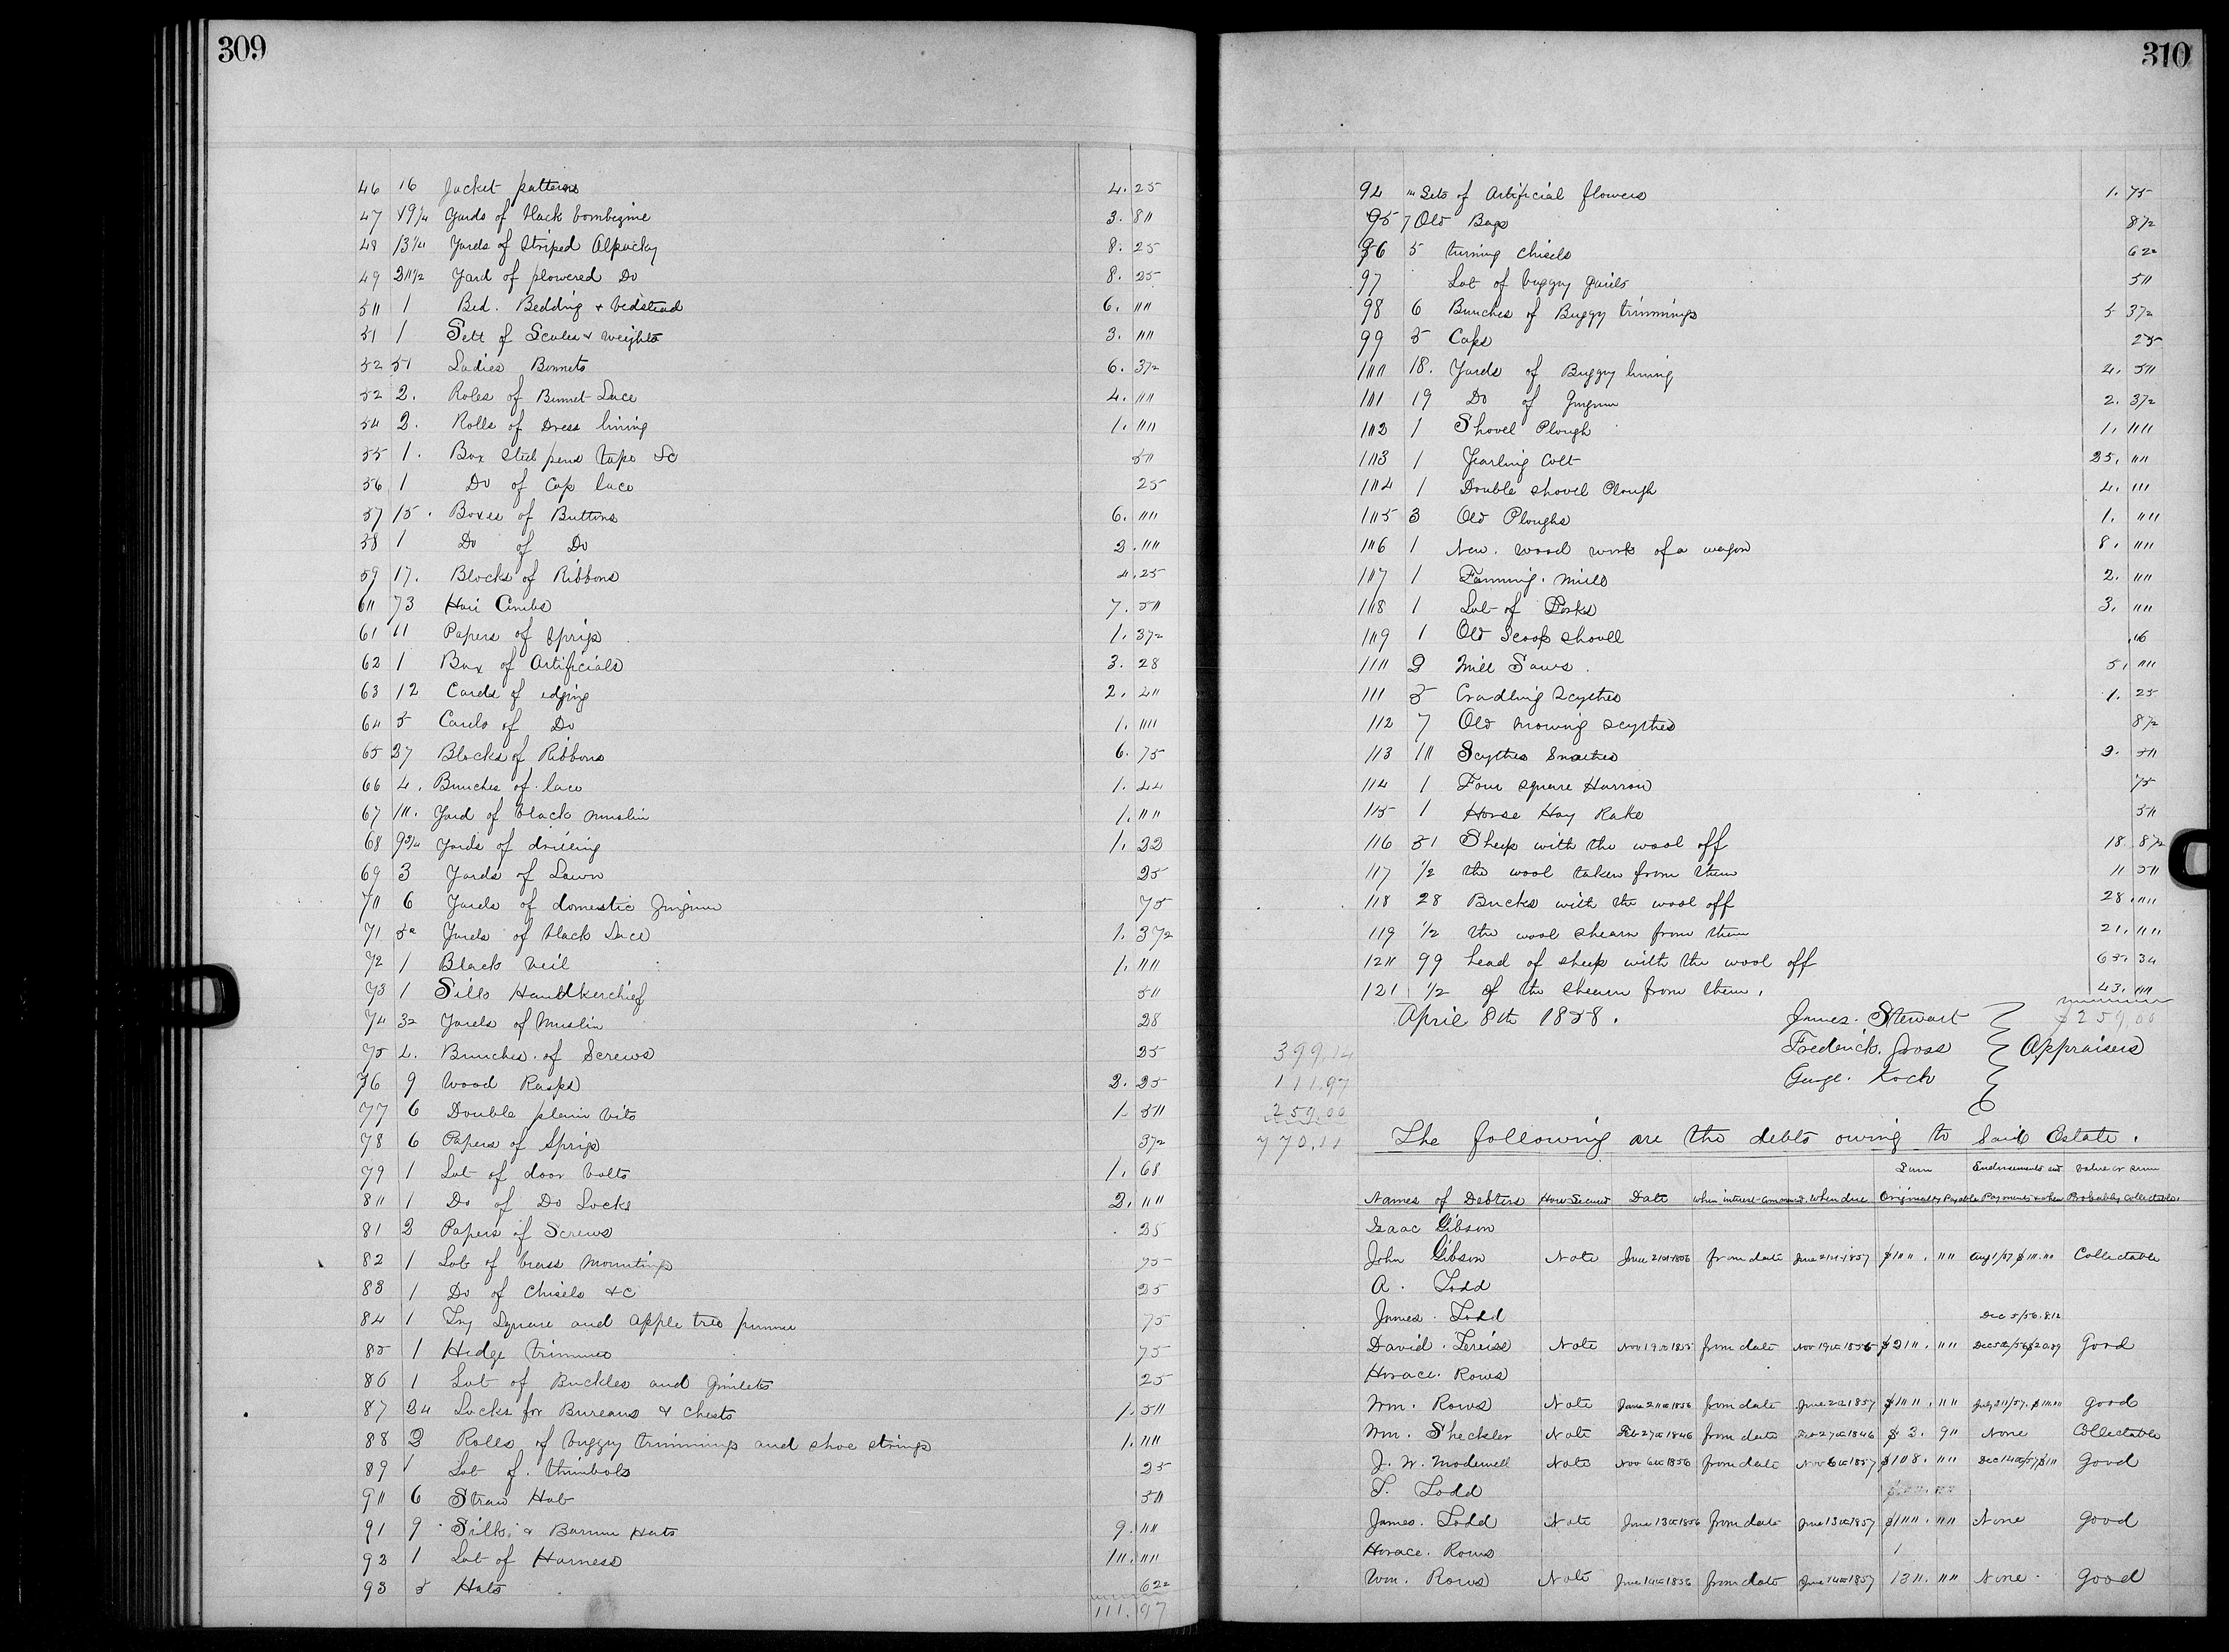 309
46 16 Jacket patterns 4. 25
47 49 1/4 Yards of black bombezine 3. 8"
48 13 1/4 Yards of Striped Alpacky 8. 25
49 2" 1/2 Yard of flowered Do 8. 25
5" 1 Bed. Bedding + bedstead 6. ""
51 1 Sett of Scales + weights 3. ""
52 51 Ladies Bonnets 6. 37 2
52 2. Roles of Bonnet Lace 4. ""
54 2. Rolls of Dress lining 1. ""
55 1. Box Steel pens tape &c 5"
56 1 Do of Cap lace 25
57 15. Boxes of Buttons 6. ""
58 1 Do of Do 2. ""
59 17. Blocks of Ribbons 4. 25
6" 73 Hair Combs 7. 5"
61 11 Papers of Sprigs 1. 37 2
62 1 Box of Artificials 3. 28
63 12 Cards of edging 2. 4"
64 5 Cards of Do 1. ""
65 27 Blocks of Ribbons 6. 75
66 4. Bunches of lace 1. 44
67 1". Yard of black muslin 1. ""
68 9 3/4 Yards of drilling 1. 22
69 3 Yards of Lawn 25
7" 6 Yards of domestic Gingum 75
71 5 2 Yards of black Lace 1. 37 2
72 1 Black Veil 1. ""
73 1 Silk Handkerchief 5"
74 3 2 Yards of Muslin 28
75 4. Bunches of Screws 25
76 9 Wood Rasps 2. 25
77 6 Double plain bits 1. 5"
78 6 Papers of Sprigs 37 2
79 1 Lot of door bolts 1. 68
8" 1 Do of Do Locks 2. ""
81 2 Papers of Screws 25
82 1 Lot of brass Mountings 75
83 1 Do of Chisels &C 25
84 1 Try Square and apple tree 75
85 1 Hedge trimmer 75
86 1 Lot of Buckles and Gimlets 25
87 24 Locks for Bureaus & Chests 1. 5"
88 2 Rolls of buggy trimmings and shoe strings 1. ""
89 1 Lot of thimbols 25
9" 6 Straw Hats 5"
91 9 Silk & Hats 9. ""
92 1 Lot of Harness 1". ""
93 5 Hats 62 2
111. 97
310
94 "' Sets of Artificial flowers 1. 75
95 7 Old Bags 87 2
96 5 turning Chisels 62 2
97 Lot of buggy 5"
98 6 Bunches of Buggy trimmings 5 37 2
99 5 Caps 25
1"" 18. Yards of Buggy lining 4. 5"
1"1 19 Do of Gingum 2. 37 2
1"2 1 Shovel Plough 1. ""
1"3 1 Yearling Colt 25. ""
1"4 1 Double shovel Plough 4. ""
1"5 3 Old Ploughs 1. ""
1"6 1 New. wood work of a wagon 8. ""
1"7 1 Fanning. mill 2. ""
1"8 1 Lot of Forks 3. ""
1"9 1 Old Scoop shovel "6
11" 2 Mill Saws. 5. ""
111 5 Cradling Scythes 1. 25
112 7 Old mowing scythes 87 2
113 1" Scythes Snathes 2. 5"
114 1 Four square Harrow 75
115 1 Horse Hay Rake 5"
116 51 Sheep with the wool off 18. 87 2
117 1/2 the wool taken from them 11 5"
118 28 Bucks with the wool off 28. ""
119 1/2 the wool shearn from them 21. ""
12" 99 head of sheep with the wool off 65. 34
121 1/2 of the shearn from them. 43. ""
April 8th 1858. James. Stewart $259.00
399.14 Frederick. Joss Appraisers
111.97 George. Koch
259.00
770.11 The following are the debts owing to Said Estate.
Sum Endorsements and Value or sum
Names of Debters How Secured Date when interest commenced When due Originally Payable Payments & when Probably Collectable.
Isaac Gibson
John Gibson Note June 21st 1856 from date June 21st 1857 $1"". "" Aug 1/57 $1". "" Collectable
A. Todd
James. Todd Dec 5/56. 8.12
David. Note Nov 19th 1855 from date Nov 19th 1856 $21". "" Good
Horace. Rows
Wm. Rows Note June 2" 1856 from date June 2 1857 $1"". "" July 31/57. $1"."" good
Wm. Sheckler Note Feb 27th 1846 from date Feb 27th 1846 $3. 9" None Collectable
J. W. Moderwell Note Nov 6th 1856 from date Nov 6th 1857 $1"8. "" Dec 14th/57 $1" Good
T. Todd
James. Todd Note June 13th 1856 from date June 13th 1857 $1"". "" None good
Horace. Rows
Wm. Rows Note June 14th 1856 from date June 14th 1857 13". "" None. Good